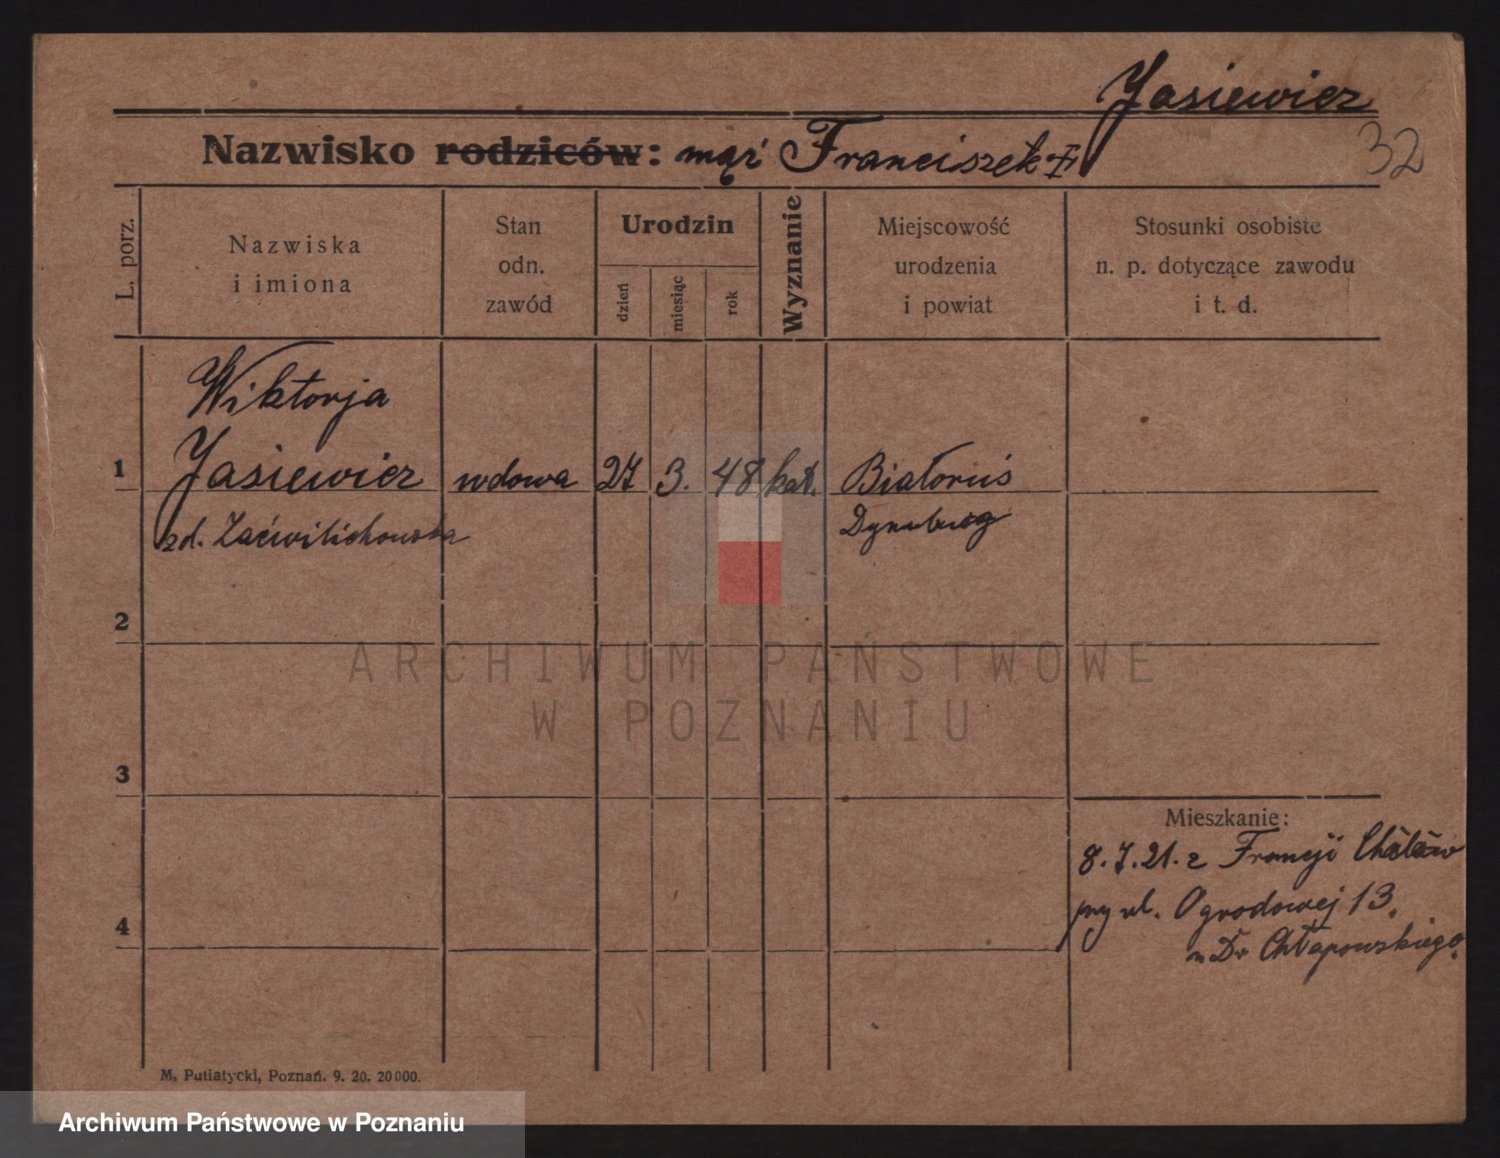 Jasiewicz
32
Nazwisko rodziców: mąż Franciszek
L. porz.
Nazwiska
i imiona
Stan
odn.
zawód
Urodzin
dzień
miesiąc
rok
Wyznanie
Miejscowość
urodzenia
i powiat
Stosunki osobiste
n. p. dotyczące zawodu
i t. d.
Wiktorja
1 Jasiewicz wdowa 27 3. 48 kat. Białoruś
zd. Zaćwilichowska Dynaburg
2
ARCHIWUM PAŃSTWOWE
W POZNANIU
3
Mieszkanie:
8.7.21. z Francji
przy ul. Ogrodowej 13.
4
u Dr Chłapowskiego.
M. Putiatycki, Poznań. 9. 20. 20000.
Archiwum Państwowe w Poznaniu